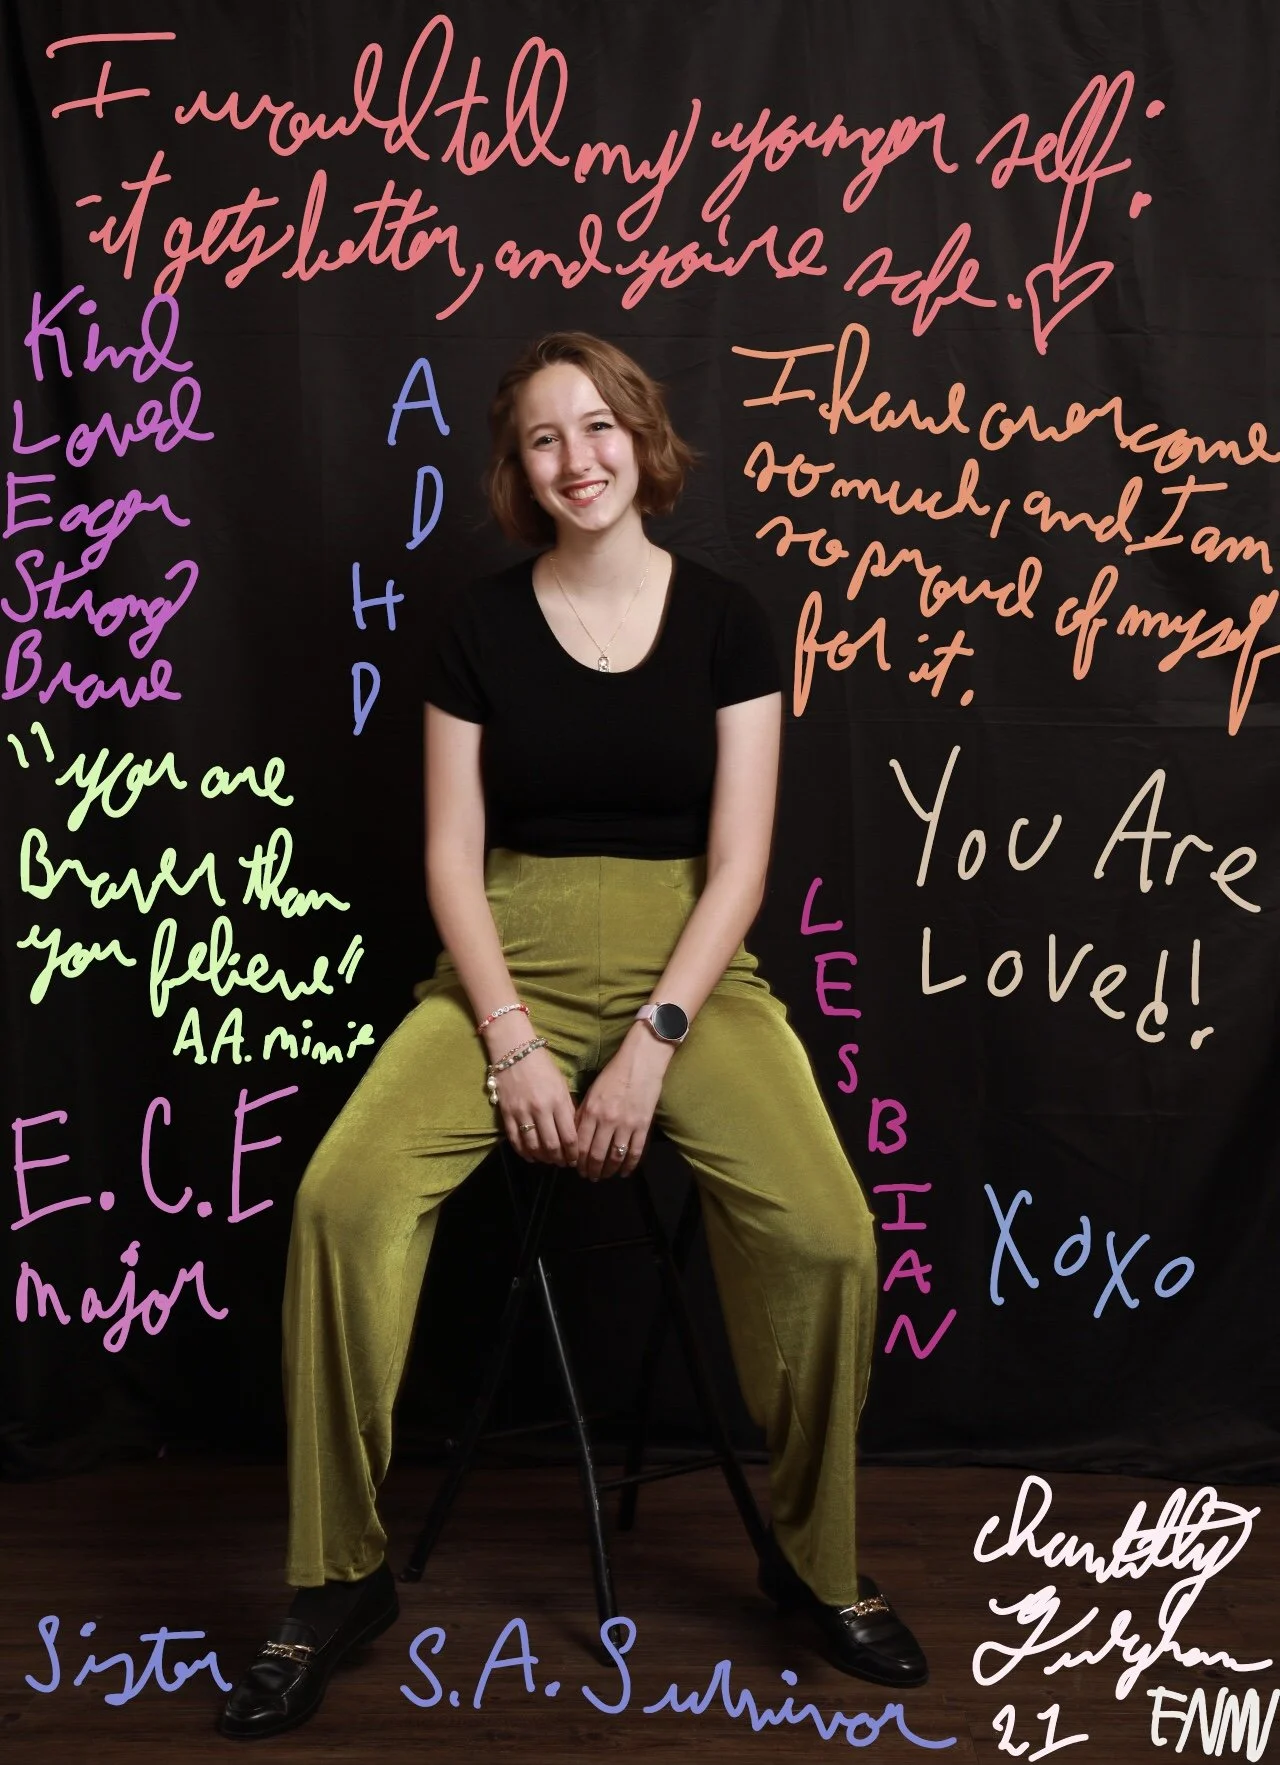 I would tell my younger self:
-it gets better, and you're safe.
Kind
Loved
Eager
Strong
Brave
A
D
H
D
I have overcome
so much, and I am
so proud of myself
for it.
"you are
Braver than
you believe"
A.A. minie
You Are
Loved!!
E.C.E
major
L
E
S
B
I
A
N
XoXo
Sister
S.A. Survivor
chantilly
21